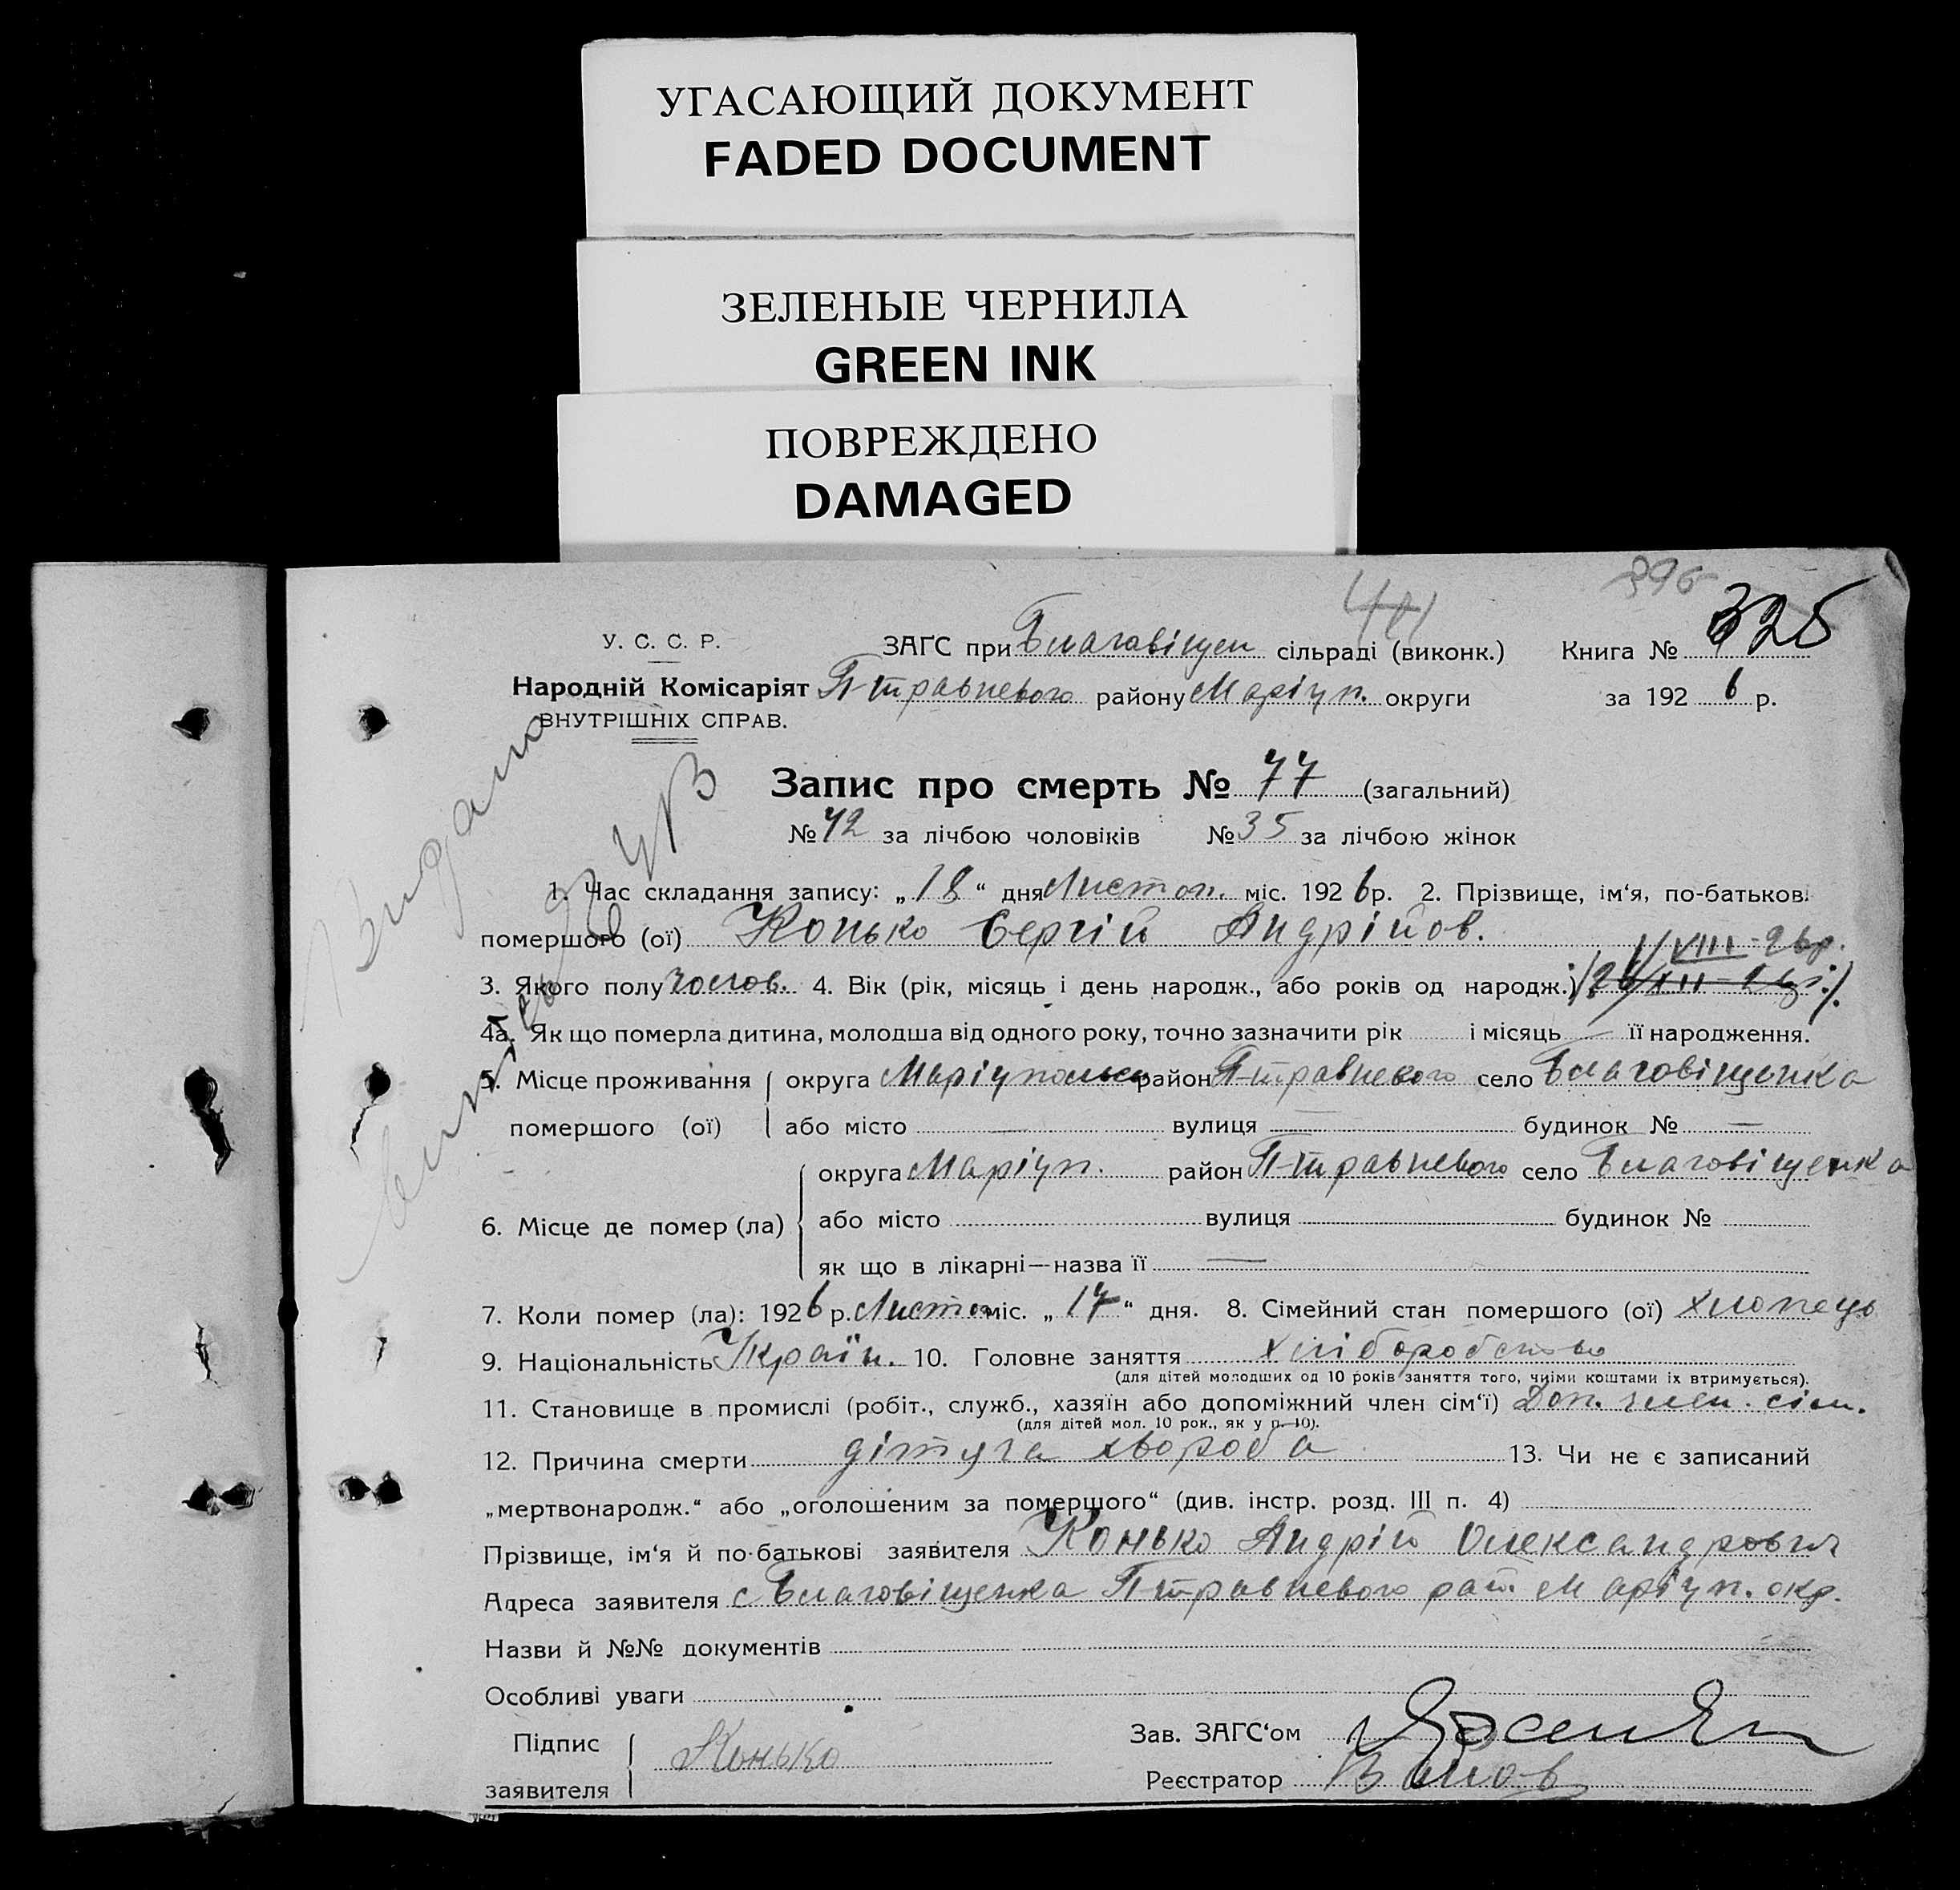 УГАСАЮЩИЙ ДОКУМЕНТ
FADED DOCUMENT
ЗЕЛЕНЫЕ ЧЕРНИЛА
GREEN INK
ПОВРЕЖДЕНО
DAMAGED
396
У. С. С. Р. ЗАҐС при Благовіщен сільраді (виконк.) Книга № 325
Народній Комісаріят П-травневого району Маріуп. округи за 1926 р.
ВНУТРІШНІХ СПРАВ.
Видано
Запис про смерть № 77 (загальний)
№ 42 за лічбою чоловіків № 35 за лічбою жінок
1. Час складання запису: „18“ дня Листоп. міс. 1926 р. 2. Прізвище, ім‘я, по-батькові
помершого (ої) Конько Сергій Андрійов.
1/VIII-26р.
3. Якого полу чолов. 4. Вік (рік, місяць і день народж., або років од народж.)
4а. Як що померла дитина, молодша від одного року, точно зазначити рік і місяць — її народження.
5. Місце проживання округа Маріупольськ район П-травневого село Благовіщенка
помершого (ої) або місто — вулиця — будинок № —
округа Маріуп. район П-травневого село Благовіщенка
6. Місце де помер (ла) або місто вулиця будинок №
як що в лікарні—назва її —
7. Коли помер (ла): 1926 р. Листоп міс. „17“ дня. 8. Сімейний стан помершого (ої) хлопець
9. Національність Україн. 10. Головне заняття хліборобство
(для дітей молодших од 10 років заняття того, чиїми коштами їх втримується).
11. Становище в промислі (робіт., служб., хазяїн або допоміжний член сім‘ї) Доп. член. сім.
(для дітей мол. 10 рок., як у п. 10).
12. Причина смерти дітяча хвороба 13. Чи не є записаний
„мертвонародж.“ або „оголошеним за померщого“ (див. інстр. розд. III п. 4)
Прізвище, ім‘я й по-батькові заявителя Конько Андрій Олександрович
Адреса заявителя с Благовіщенка П-травневого рай. Маріуп. окр.
Назви й №№ документів
Особливі уваги
Підпис Зав. ЗАГС‘ом
заявителя Конько Реєстратор